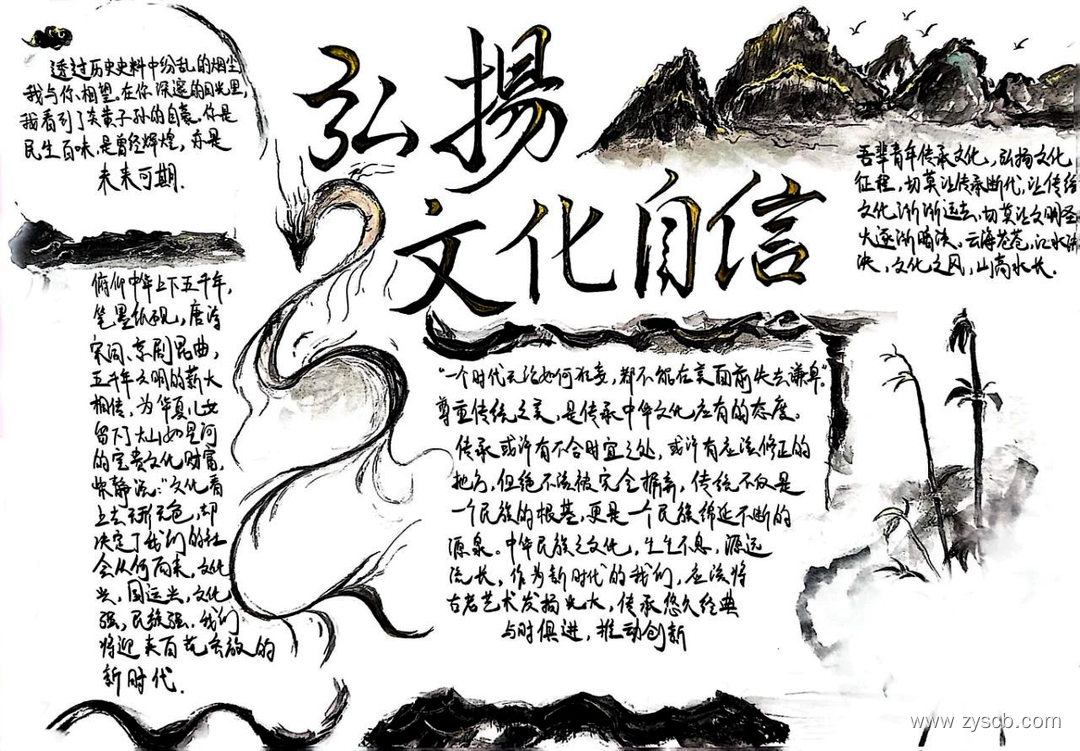 弘揚
文化自信
透过历史史料中纷乱的烟尘
我与你相望。在你深邃的目光里,
我看到了炎黄子孙的自豪。你是
民生百味,是曾经辉煌,亦是
未来可期.
吾辈青年传承文化,弘扬文化
征程,切莫让传承断代,让传统
文化渐渐远去,切莫让文明圣
火逐渐暗淡。云海苍苍,江水泱
泱,文化之风,山高水长.
俯仰中华上下五千年,
笔墨纸砚,唐诗
宋词、京剧昆曲,
五千年文明的薪火
相传,为华夏儿女
留下了大山如星河
的宝贵文化财富,
柴静说:“文化看
上去无形无色,却
决定了我们的社
会从何而来,文化
兴,国运兴,文化
强,民族强.我们
将迎来百花齐放的
新时代.
“一个时代无论如何改变,都不能在美面前失去谦卑.”
尊重传统之美,是传承中华文化应有的态度。
传承或许有不合时宜之处,或许有应该修正的
地方,但绝不该被完全摒弃,传统不仅是
一个民族的根基,更是一个民族绵延不断的
源泉。中华民族之文化,生生不息,源远
流长,作为新时代的我们,应该将
古老艺术发扬光大,传承悠久经典
与时俱进,推动创新
www.zyscb.com